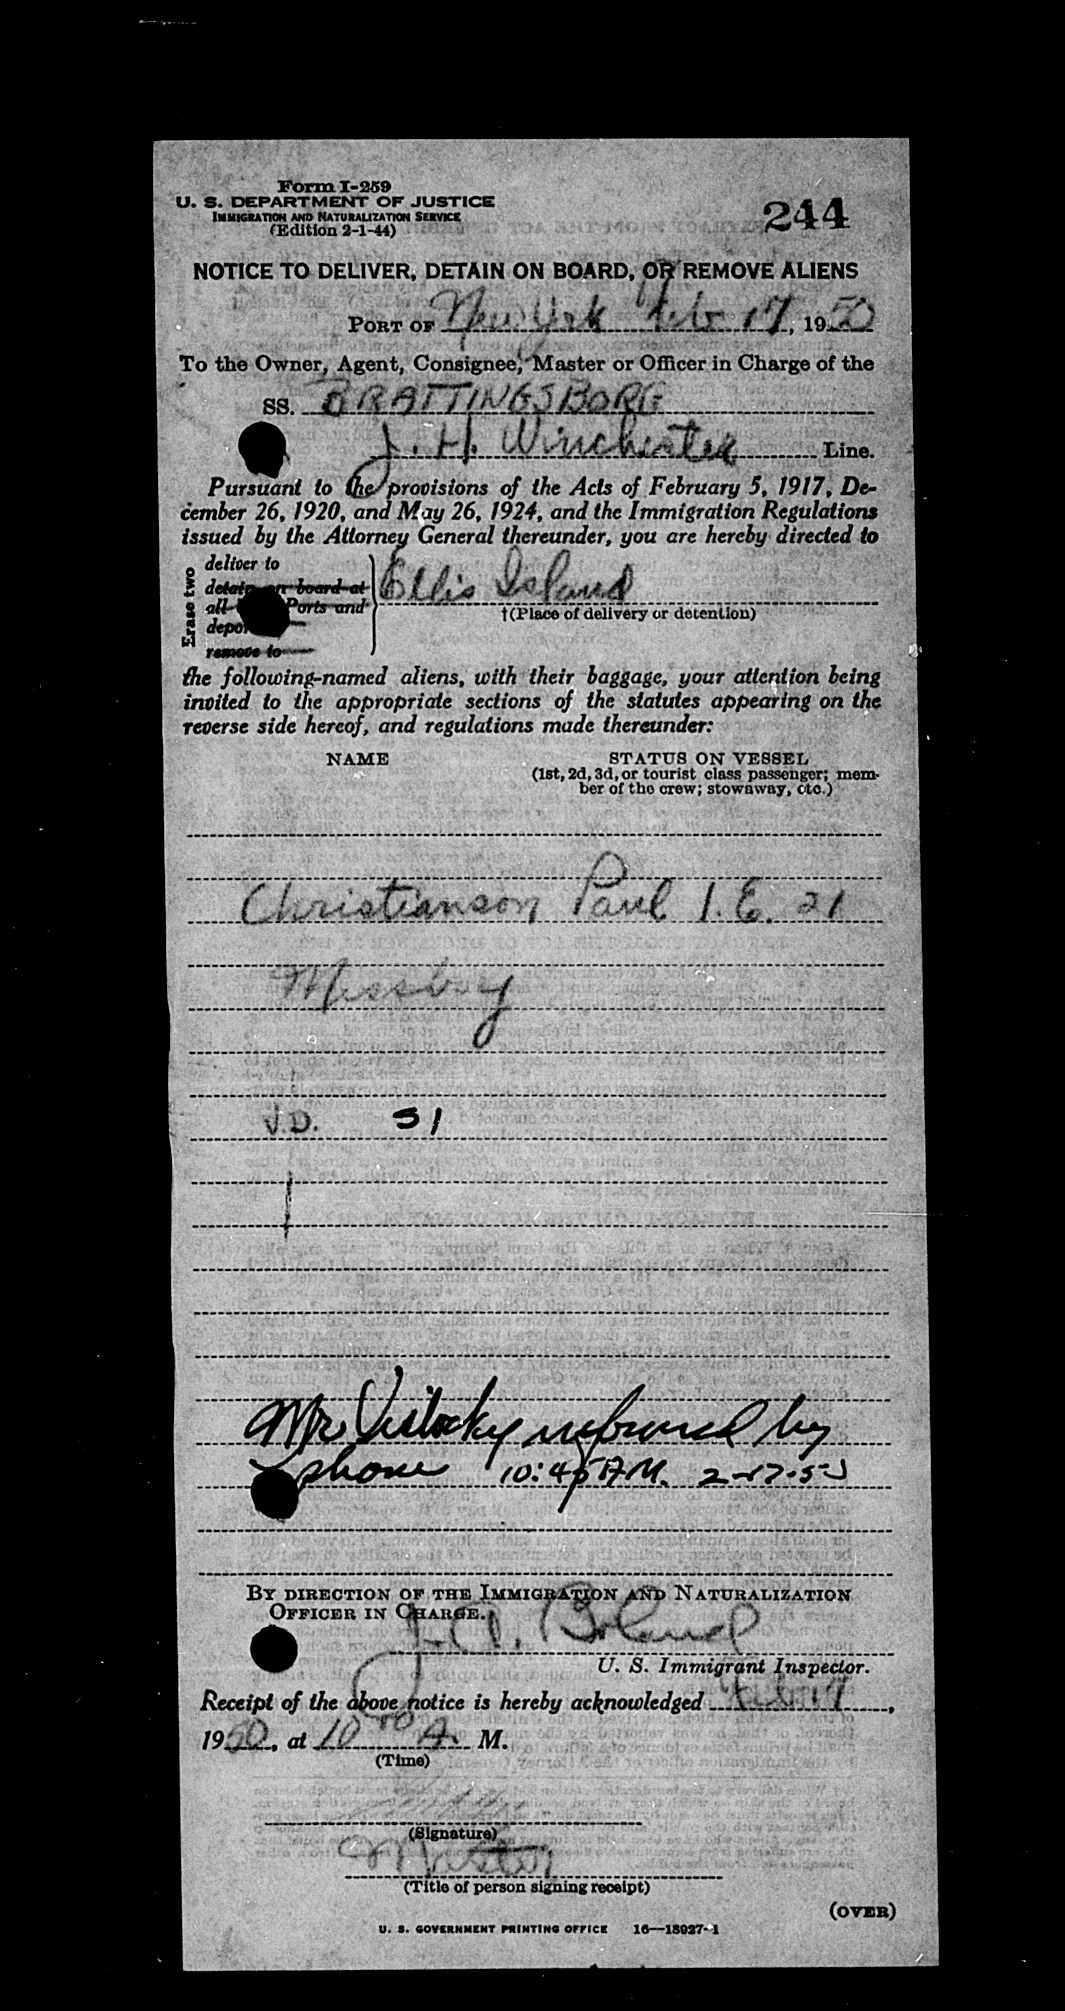 Form I-259
U. S. DEPARTMENT OF JUSTICE
IMMIGRATION AND NATURALIZATION SERVICE
(Edition 2-1-44)
244
NOTICE TO DELIVER, DETAIN ON BOARD, OR REMOVE ALIENS
PORT OF New York Feb 17, 1950
To the Owner, Agent, Consignee, Master or Officer in Charge of the
SS. BRATTINGSBORG
J. H. Winchester Line.
Pursuant to the provisions of the Acts of February 5, 1917, De-
cember 26, 1920, and May 26, 1924, and the Immigration Regulations
issued by the Attorney General thereunder, you are hereby directed to
Erase two
deliver to
detain on board at
all Ports and
remove to
Ellis Island
†(Place of delivery or detention)
the following-named aliens, with their baggage, your attention being
invited to the appropriate sections of the statutes appearing on the
reverse side hereof, and regulations made thereunder:
NAME
STATUS ON VESSEL
(1st, 2d, 3d, or tourist class passenger; mem-
ber of the crew; stowaway, etc.)
Christianson Paul I. E. 21
Messboy
J.D. 31
Mr informed by
phone 10:45 A.M. 2-17-50
BY DIRECTION OF THE IMMIGRATION AND NATURALIZATION
OFFICER IN CHARGE.
J. A. Boland
U. S. Immigrant Inspector.
Receipt of the above notice is hereby acknowledged Feb 17,
1950, at 10 00 A. M.
(Time)
(Signature)
Master
(Title of person signing receipt)
(OVER)
U. S. GOVERNMENT PRINTING OFFICE 16—18927-1